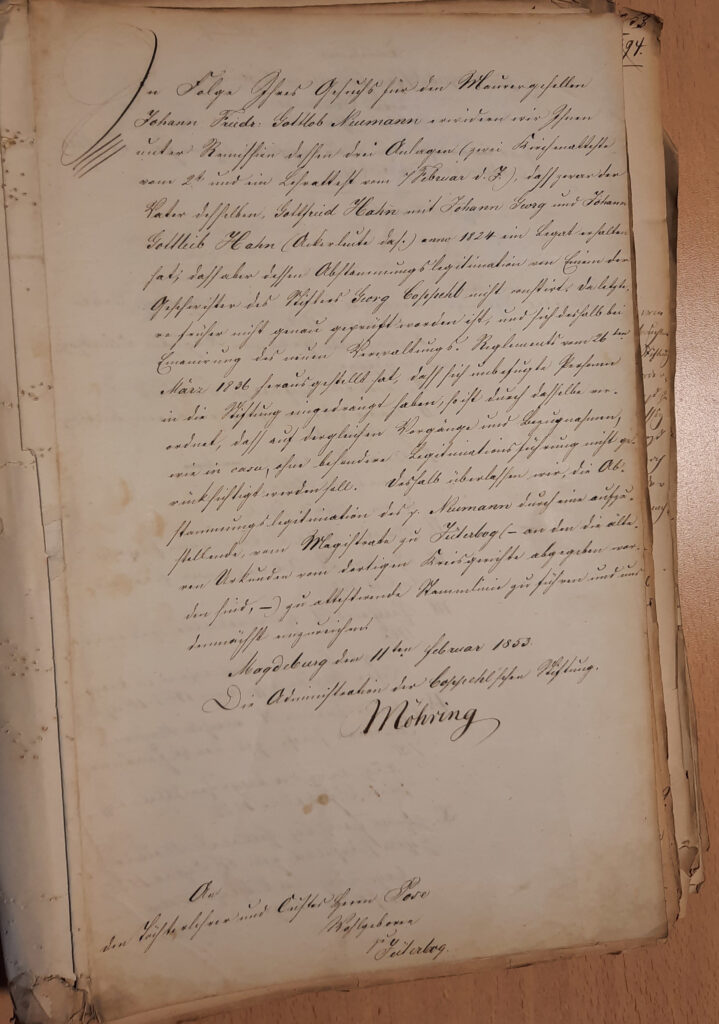 94.
In Folge Ihres Gesuchs für den Maurergesellen
Johann Friedr. Gottlob Neumann erwidern wir Ihnen
unter Remission dessen drei Anlagen (zwei Kirchenatteste
vom 2t. und ein Lehrattest vom 7 Februar d. J.), dass zwar der
Vater desselben, Gottfried Hahn mit Johann Georg und Johann
Gottlieb Hahn (Ackerleute das.) anno 1824 ein Legat erhalten
hat; dass aber dessen Abstammungslegitimation von Einem der
Geschwister des Stifters Georg Coschehl nicht constirt. Da letzte-
re früher nicht genau geprüft worden ist, und sich deshalb bei
Emanirung des neuen Verwaltungs-Reglements vom 26ten
März 1836 herausgestellt hat, dass sich unbefugte Personen
in die Stiftung eingedrängt haben; so ist durch dasselbe ver-
ordnet, dass auf dergleichen Vorgänge und Bezugnahmen,
wie in casu, ohne besondere Legitimationsführung nicht ge-
rücksichtigt werden soll. Deshalb überlassen wir, die Ab-
stammungslegitimation des p. Neumann durch eine aufzu-
stellende, vom Magistrate zu Jüterbog (– an den die älte-
ren Urkunden vom dortigen Kreisgerichte abgegeben wor-
den sind, –) zu attestirende Stammlinie zu führen und uns
demnächst einzureichen.
Magdeburg den 11ten Februar 1853.
Die Administration der Coschehl'schen Stiftung.
Möhring
An
den Töchterlehrer und Cüster Herrn
Wohlgeboren
zu
Jüterbog.